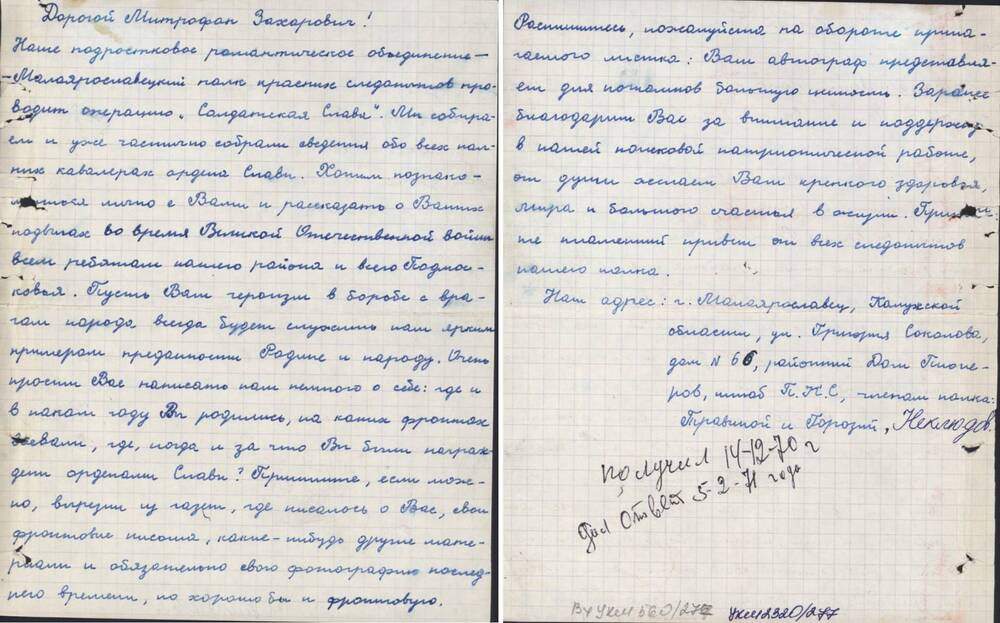 Дорогой Митрофан Захарович!
Наше подростковое романтическое объединение –
– Малоярославецкий полк красных следопытов про-
водит операцию „Солдатская Слава". Мы собира-
ем и уже частично собрали сведения обо всех пол-
ных кавалерах ордена Славы. Хотим познако-
миться лично с Вами и рассказать о Ваших
подвигах во время Великой Отечественной войны
всем ребятам нашего района и всего Подмос-
ковья. Пусть Ваш героизм в борьбе с вра-
гом народа всегда будет служить нам ярким
примером преданности Родине и народу. Очень
просим Вас написать нам немного о себе: где и
в каком году Вы родились, на каких фронтах
воевали, где, когда и за что Вы были награж-
дены орденами Славы? Пришлите, если мож-
но, вырезки из газет, где писалось о Вас, свои
фронтовые письма, какие-нибудь другие мате-
риалы и обязательно свою фотографию послед-
него времени, но хорошо бы и фронтовую.
Распишитесь, пожалуйста на обороте прила-
гаемого листка: Ваш автограф представля-
ет для потомков большую ценность. Заранее
благодарим Вас за внимание и поддержку
в нашей поисковой патриотической работе,
от души желаем Вам крепкого здоровья,
мира и большого счастья в жизни. Прими-
те пламенный привет от всех следопытов
нашего полка.
Наш адрес: г. Малоярославец, Калужской
области, ул. Григория Соколова,
дом N 66, районный Дом Пионе-
ров, штаб П.К.С, членам полка:
Травиной и Горозий, Неклюдов.
получил 14-12-70 г
Дал Ответ 5-2-71 года
ВХ УКМ 560/277
УКМ 2320/277